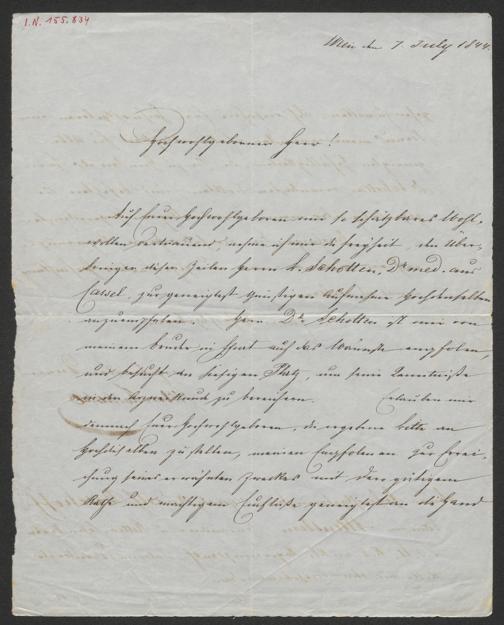 I.N. 155.834
Wien den 7. July 1844.
Hochwohlgeborner Herr!
Auf Euer Hochwohlgeboren mir so schätzbares Wohl-
wollen vertrauend, nehme ich mir die Freiheit den Über-
bringer dieser Zeilen Herrn H. Schotten, Dr med. aus
Cassel, zur geneigtest günstigen Aufnahme Hochdenselben
anzuempfehlen. Herr Dr Schotten ist mir von
meinem Bruder auf das Wärmste empfohlen,
und besucht den hiesigen Platz, um seine Kenntniße
in der Arzneikunde zu bereichern. Erlauben mir
demnach Euer Hochwohlgeboren, die ergebene Bitte an
Hochdieselben zu stellen, meinen Empfohlenen zur Errei-
chung seines erwähnten Zweckes mit dero gütigem
Rathe und mächtigem Einfluße geneigtest an die Hand